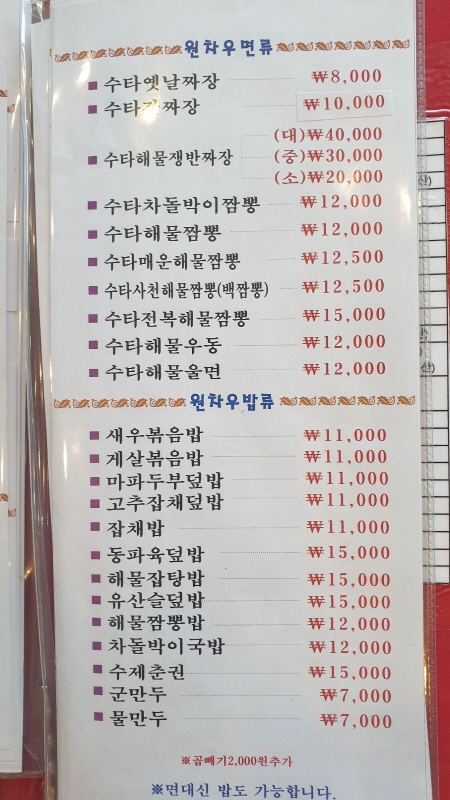 원차우면류
수타옛날짜장 ₩8,000
수타간짜장 ₩10,000
수타해물쟁반짜장 (대)₩40,000
(중)₩30,000
(소)₩20,000
수타차돌박이짬뽕 ₩12,000
수타해물짬뽕 ₩12,000
수타매운해물짬뽕 ₩12,500
수타사천해물짬뽕(백짬뽕) ₩12,500
수타전복해물짬뽕 ₩15,000
수타해물우동 ₩12,000
수타해물울면 ₩12,000
원차우밥류
새우볶음밥 ₩11,000
게살볶음밥 ₩11,000
마파두부덮밥 ₩11,000
고추잡채덮밥 ₩11,000
잡채밥 ₩11,000
동파육덮밥 ₩15,000
해물잡탕밥 ₩15,000
유산슬덮밥 ₩15,000
해물짬뽕밥 ₩12,000
차돌박이국밥 ₩12,000
수제춘권 ₩15,000
군만두 ₩7,000
물만두 ₩7,000
※곱빼기2,000원추가
※면대신 밥도 가능합니다.